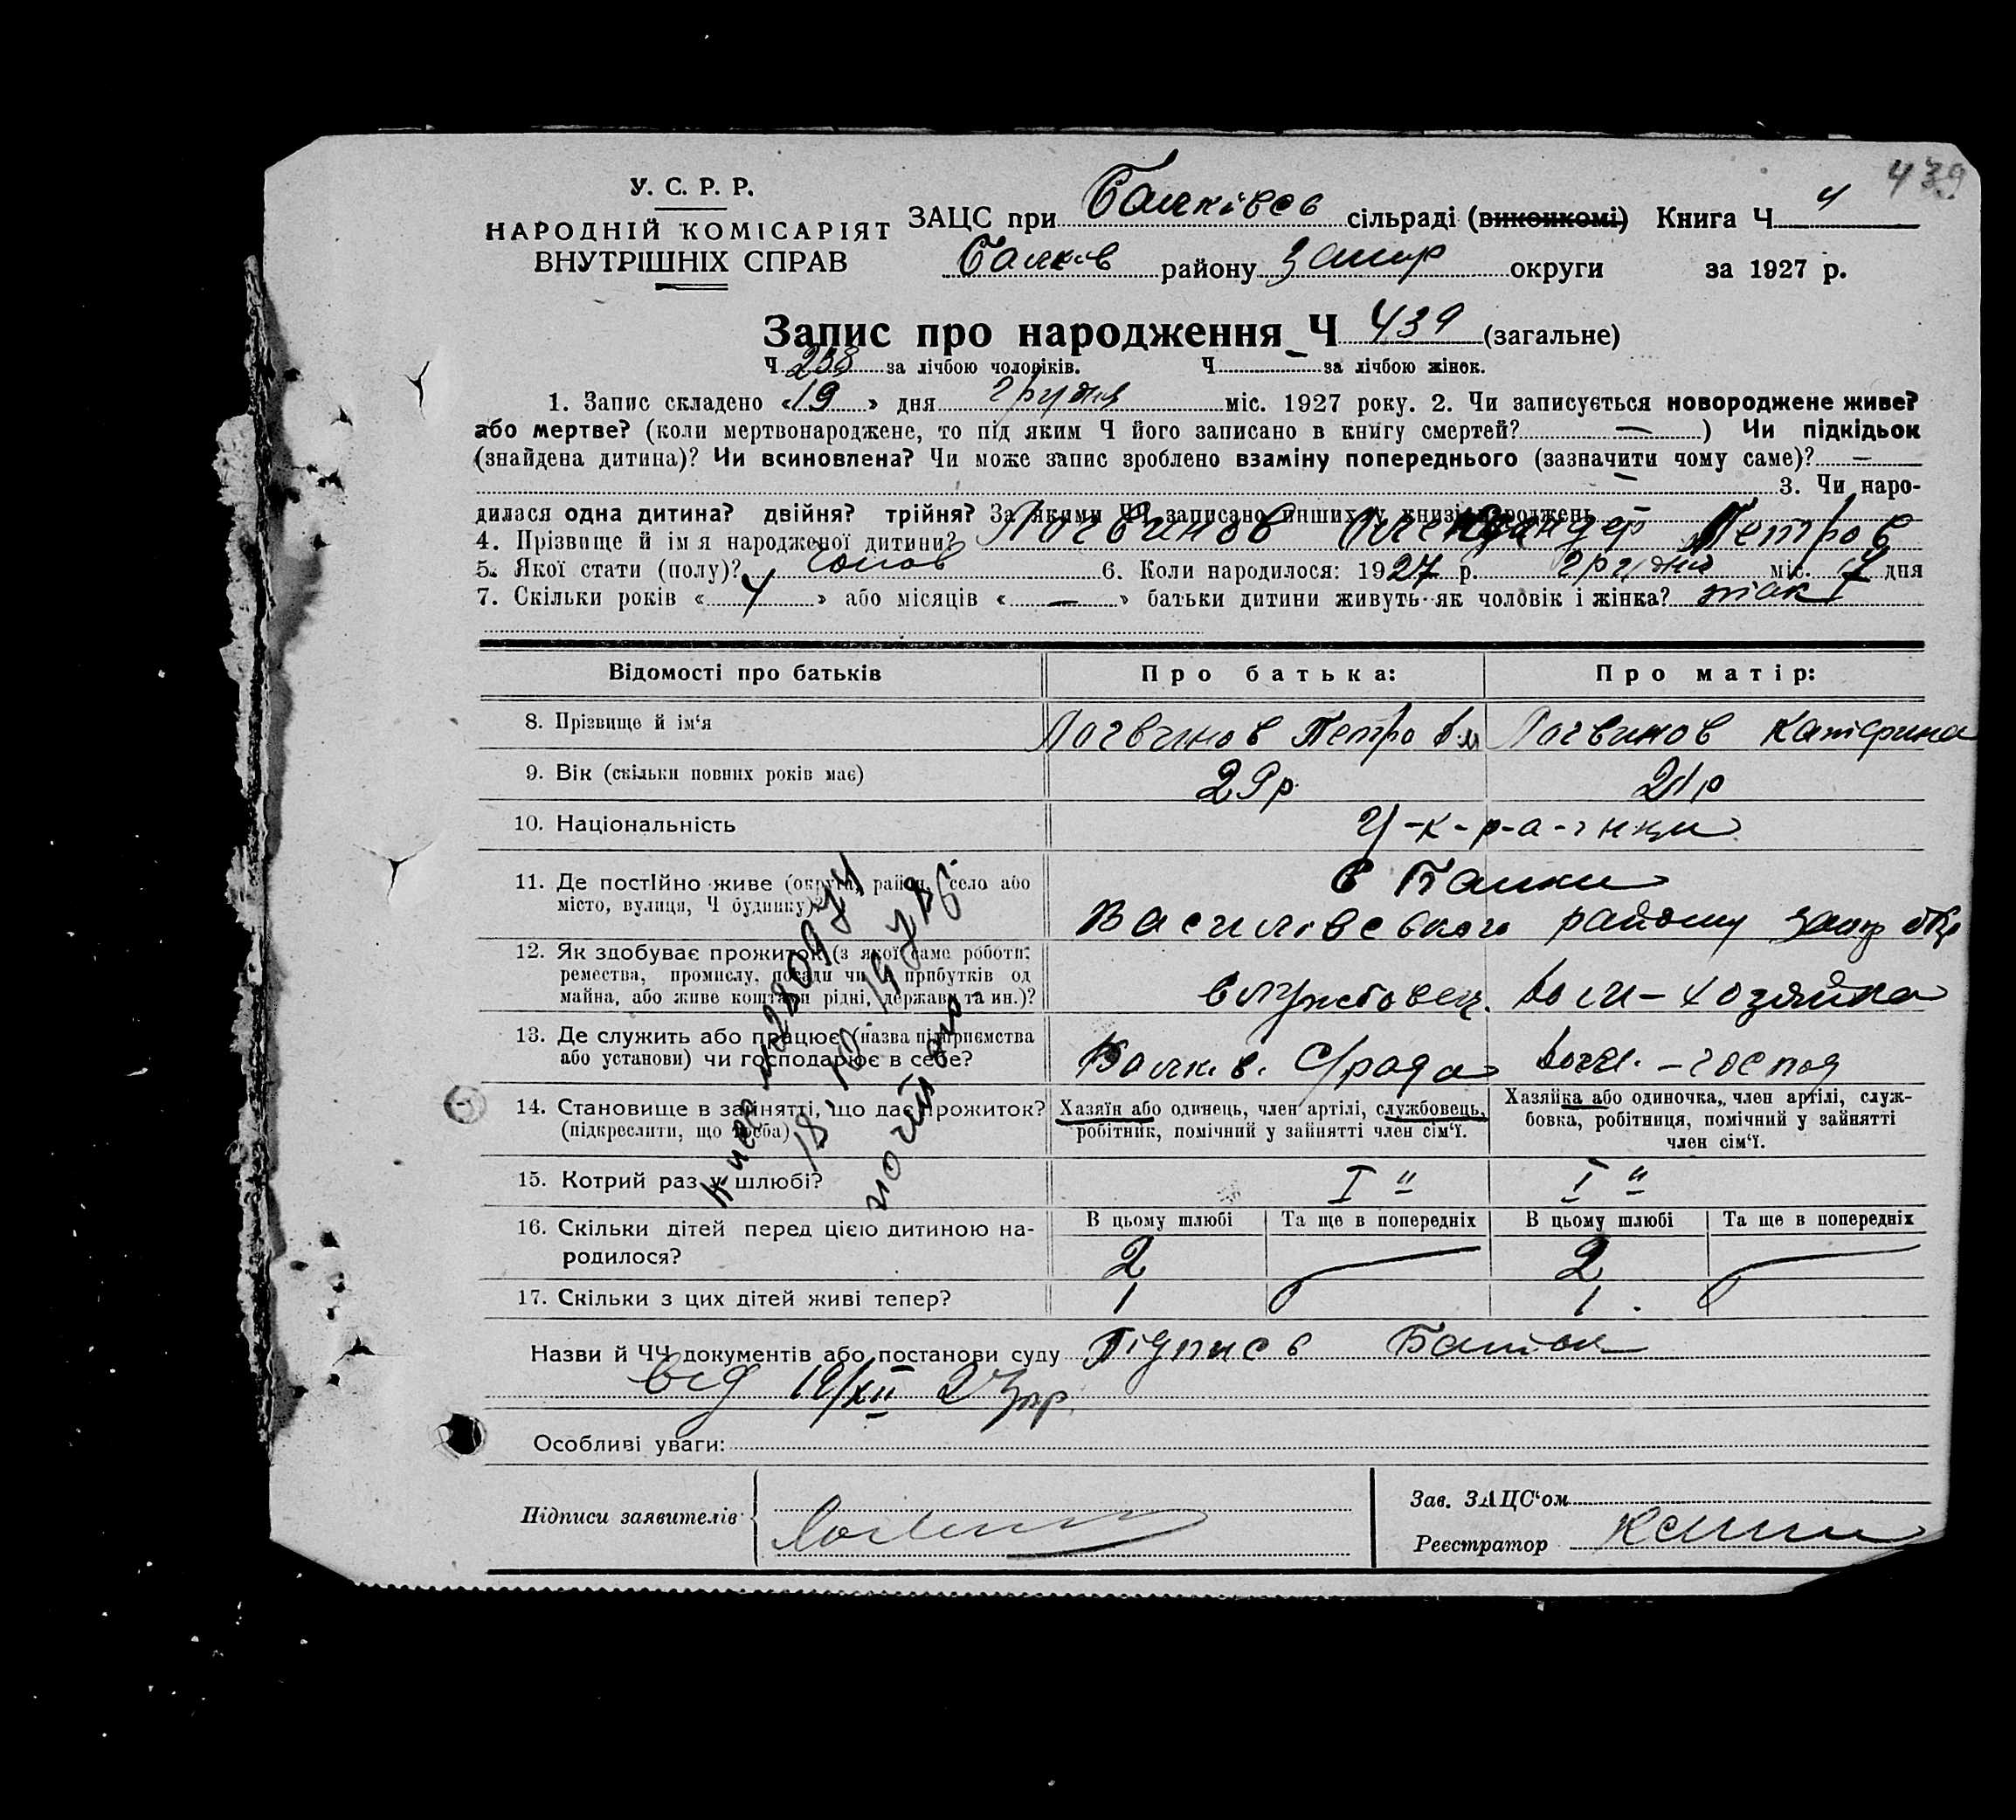 439
У. С. Р. Р.
НАРОДНІЙ КОМІСАРІЯТ
ВНУТРІШНІХ СПРАВ
ЗАЦС при Балківсь сільраді (виконкомі) Книга Ч 4
Балків району Запор округи за 1927 р.
Запис про народження Ч 439 (загальне)
Ч 238 за лічбою чоловіків. Ч — за лічбою жінок.
1. Запис складено «19» дня грудня міс. 1927 року. 2. Чи записується новороджене живе?
або мертве? (коли мертвонароджене, то під яким Ч його записано в книгу смертей? — ) Чи підкідьок
(знайдена дитина)? Чи всиновлена? Чи може запис зроблено взаміну попереднього (зазначити чому саме)? —
— 3. Чи наро-
дилася одна дитина? двійня? трійня? За якими ЧЧ записано инших у книзі народжень
4. Прізвище й ім я народженої дитини? Логвинов Олександер Петров
5. Якої стати (полу)? чолов 6. Коли народилося: 1927 р. грудня міс. 17 дня
7. Скільки років «4» або місяців «—» батьки дитини живуть як чоловік і жінка? так
Відомості про батьків Про батька: Про матір:
8. Прізвище й ім'я Логвинов Петро Логвинов Катерина
9. Вік (скільки повних років має) 29р. 21р
10. Національність У-к-р-а-інци
11. Де постійно живе (округа, район, село або с Балки
місто, вулиця, Ч будинку)? Василівського району Запор окр
12. Як здобуває прожиток (з якої саме роботи:
ремества, промислу, посади чи з прибутків од
майна, або живе коштами рідні, держави та ин.)? службовец. дом-хозяйка
13. Де служить або працює (назва підприємства
або установи) чи господарює в себе? Балків. С/рада дом.-господ
14. Становище в зайнятті, що дає прожиток? Хазяїн або одинець, член артілі, службовець, Хазяйка або одиночка, член артілі, служ-
(підкреслити, що треба) робітник, помічний у зайнятті член сім'ї. бовка, робітниця, помічний у зайнятті
член сім'ї.
15. Котрий раз у шлюбі? I " I "
16. Скільки дітей перед цією дитиною на- В цьому шлюбі Та ще в попередніх В цьому шлюбі Та ще в попередніх
родилося? 2 2
17. Скільки з цих дітей живі тепер? 1 1
Назви й ЧЧ документів або постанови суду Підпись Батька
від 19/XII 27р.
Особливі уваги:
Підписи заявителів
Зав. ЗАЦС'ом
Реєстратор